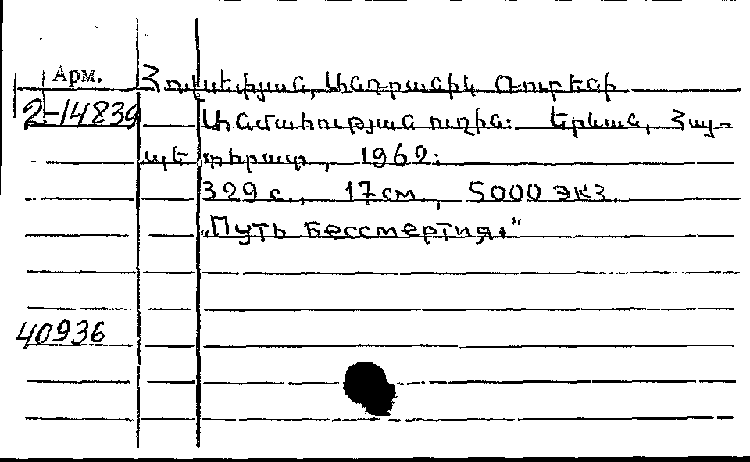 Арм.
Հովսեփյան, Անդրանիկ Ռուբենի
2-14839
Անմահության ուղին: Երևան, Հայ-
պետհրատ, 1962:
329 с., 17 см, 5000 экз.
„Путь бессмертия."
40936